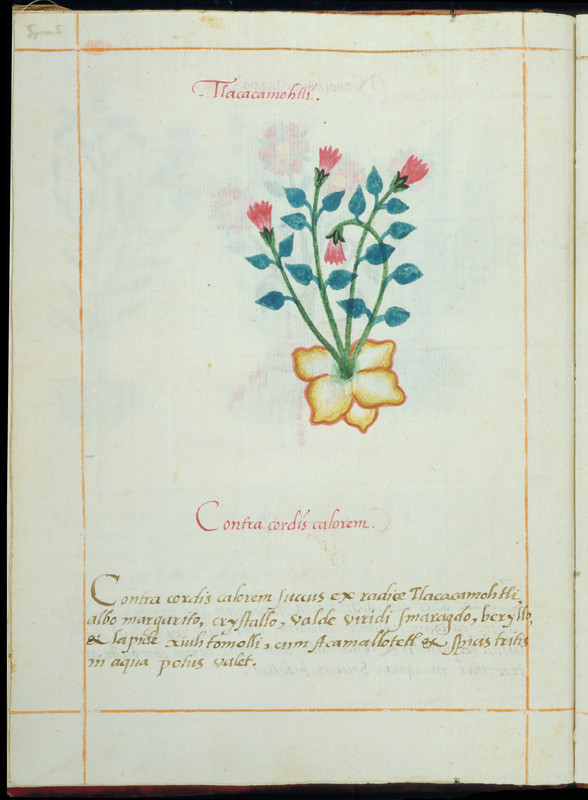 Tlacacamohtli.
Contra cordis calorem.
Contra cordis calorem succus ex radice Tlacacamohtli,
albo margarito, crystallo, valde viridi smaragdo, beryllo,
& lapide xiuhtomolli, cum &amp; spicis tritis
in aqua potus valet.